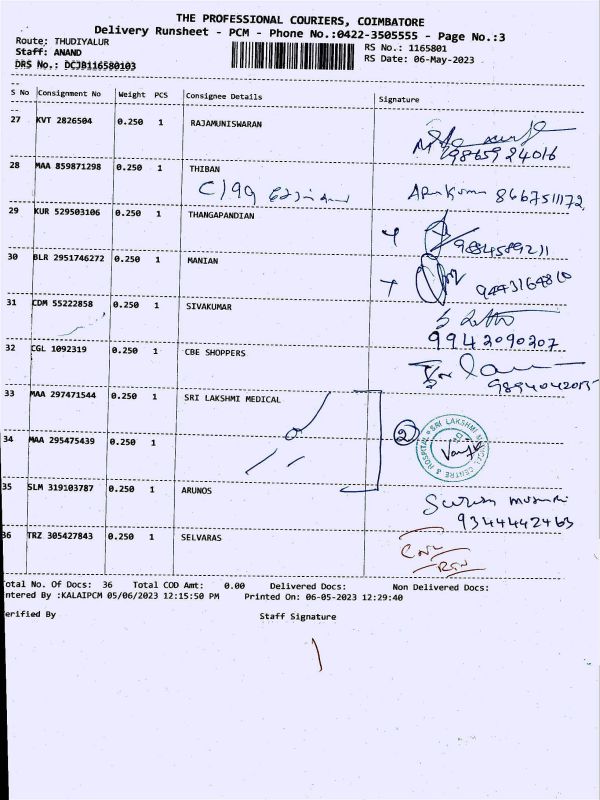 THE PROFESSIONAL COURIERS, COIMBATORE
Delivery Runsheet - PCM - Phone No.:0422-3505555 - Page No.:3
Route: THUDIYALUR
Staff: ANAND
DRS No.: DCJB116580103
RS No.: 1165801
RS Date: 06-May-2023
S No Consignment No Weight PCS Consignee Details Signature
27 KVT 2826504 0.250 1 RAJAMUNISWARAN
9865924016
28 MAA 859871298 0.250 1 THIBAN
C/99 8667511172
29 KUR 529503106 0.250 1 THANGAPANDIAN
9884589211
30 BLR 2951746272 0.250 1 MANIAN
9443164810
31 CDM 55222858 0.250 1 SIVAKUMAR
9942090207
32 CGL 1092319 0.250 1 CBE SHOPPERS
9894042015
33 MAA 297471544 0.250 1 SRI LAKSHMI MEDICAL
2 SRI LAKSHMI MEDICAL CENTRE & HOSPITAL
34 MAA 295475439 0.250 1
35 SLM 319103787 0.250 1 ARUNOS
9344442463
36 TRZ 305427843 0.250 1 SELVARAS
Total No. Of Docs: 36 Total COD Amt: 0.00 Delivered Docs: Non Delivered Docs:
ntered By :KALAIPCM 05/06/2023 12:15:50 PM Printed On: 06-05-2023 12:29:40
erified By Staff Signature